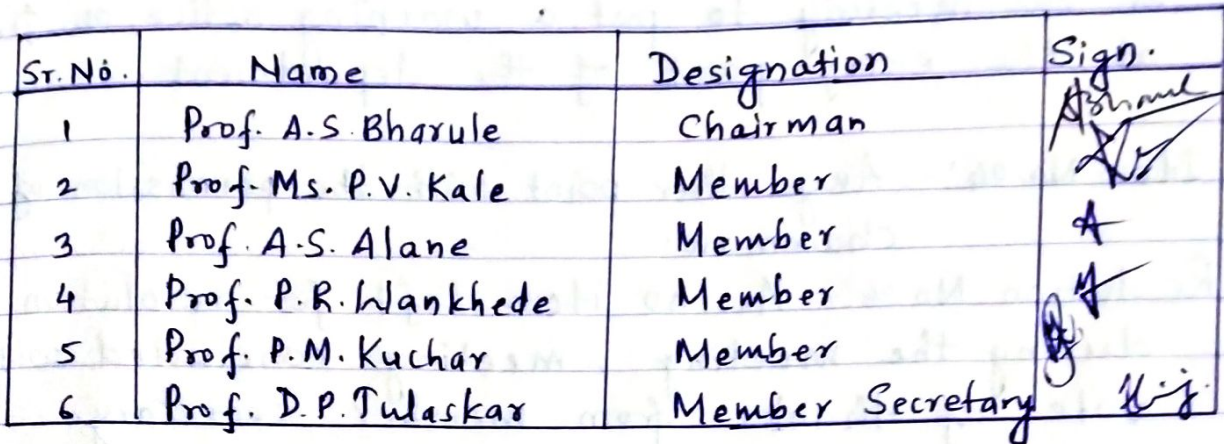 Sr. No. Name Designation Sign.
1 Prof. A.S. Bharule Chairman
2 Prof. Ms. P.V. Kale Member
3 Prof. A.S. Alane Member
4 Prof. P.R. Wankhede Member
5 Prof. P.M. Kuchar Member
6 Prof. D.P. Tulaskar Member Secretary